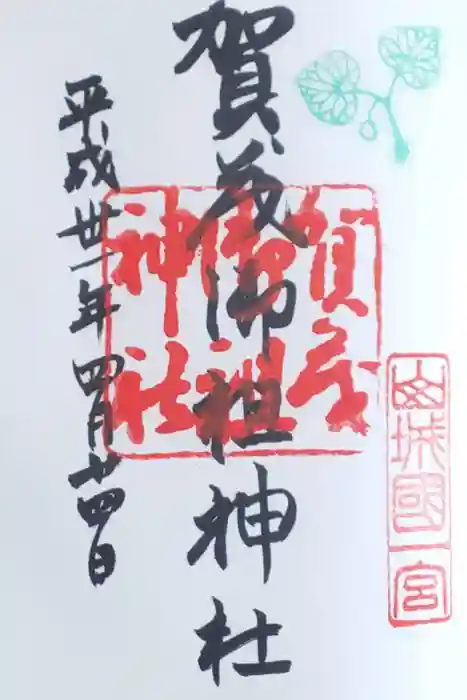 山城國一宮
賀茂御祖神社
賀茂
御祖
神社
平成卅一年四月廿四日